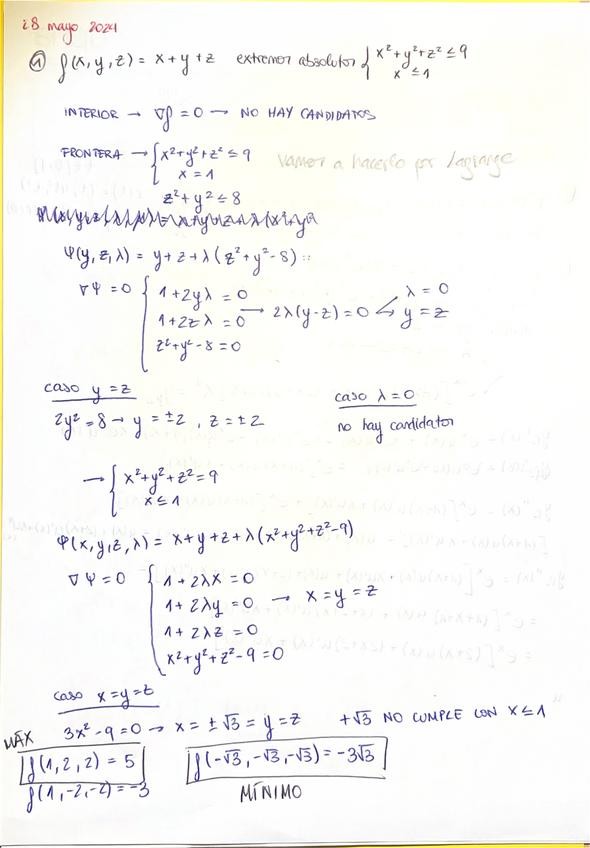 28 mayo 2024
① f(x,y,z) = x+y+z extremos absolutos { x²+y²+z² ≤ 9
x ≤ 1
INTERIOR → ∇f = 0 → NO HAY CANDIDATOS
FRONTERA → { x²+y²+z² ≤ 9 Vamos a hacerlo por Lagrange
x = 1
z²+y² ≤ 8
Ψ(y,z,λ) = y+z+λ(z²+y²-8)
∇Ψ = 0 { 1+2yλ = 0
1+2zλ = 0 → 2λ(y-z) = 0 λ = 0
y = z
z²+y²-8 = 0
caso y = z caso λ = 0
2y² = 8 → y = ±2, z = ±2 no hay candidatos
→ { x²+y²+z² = 9
x ≤ 1
φ(x,y,z,λ) = x+y+z+λ(x²+y²+z²-9)
∇Ψ = 0 { 1+2λx = 0
1+2λy = 0 → x = y = z
1+2λz = 0
x²+y²+z²-9 = 0
caso x=y=z
3x²-9 = 0 → x = ±√3 = y = z +√3 NO CUMPLE CON x ≤ 1
MÁX
f(1,2,2) = 5 f(-√3,-√3,-√3) = -3√3
f(1,-2,-2) = -3 MÍNIMO